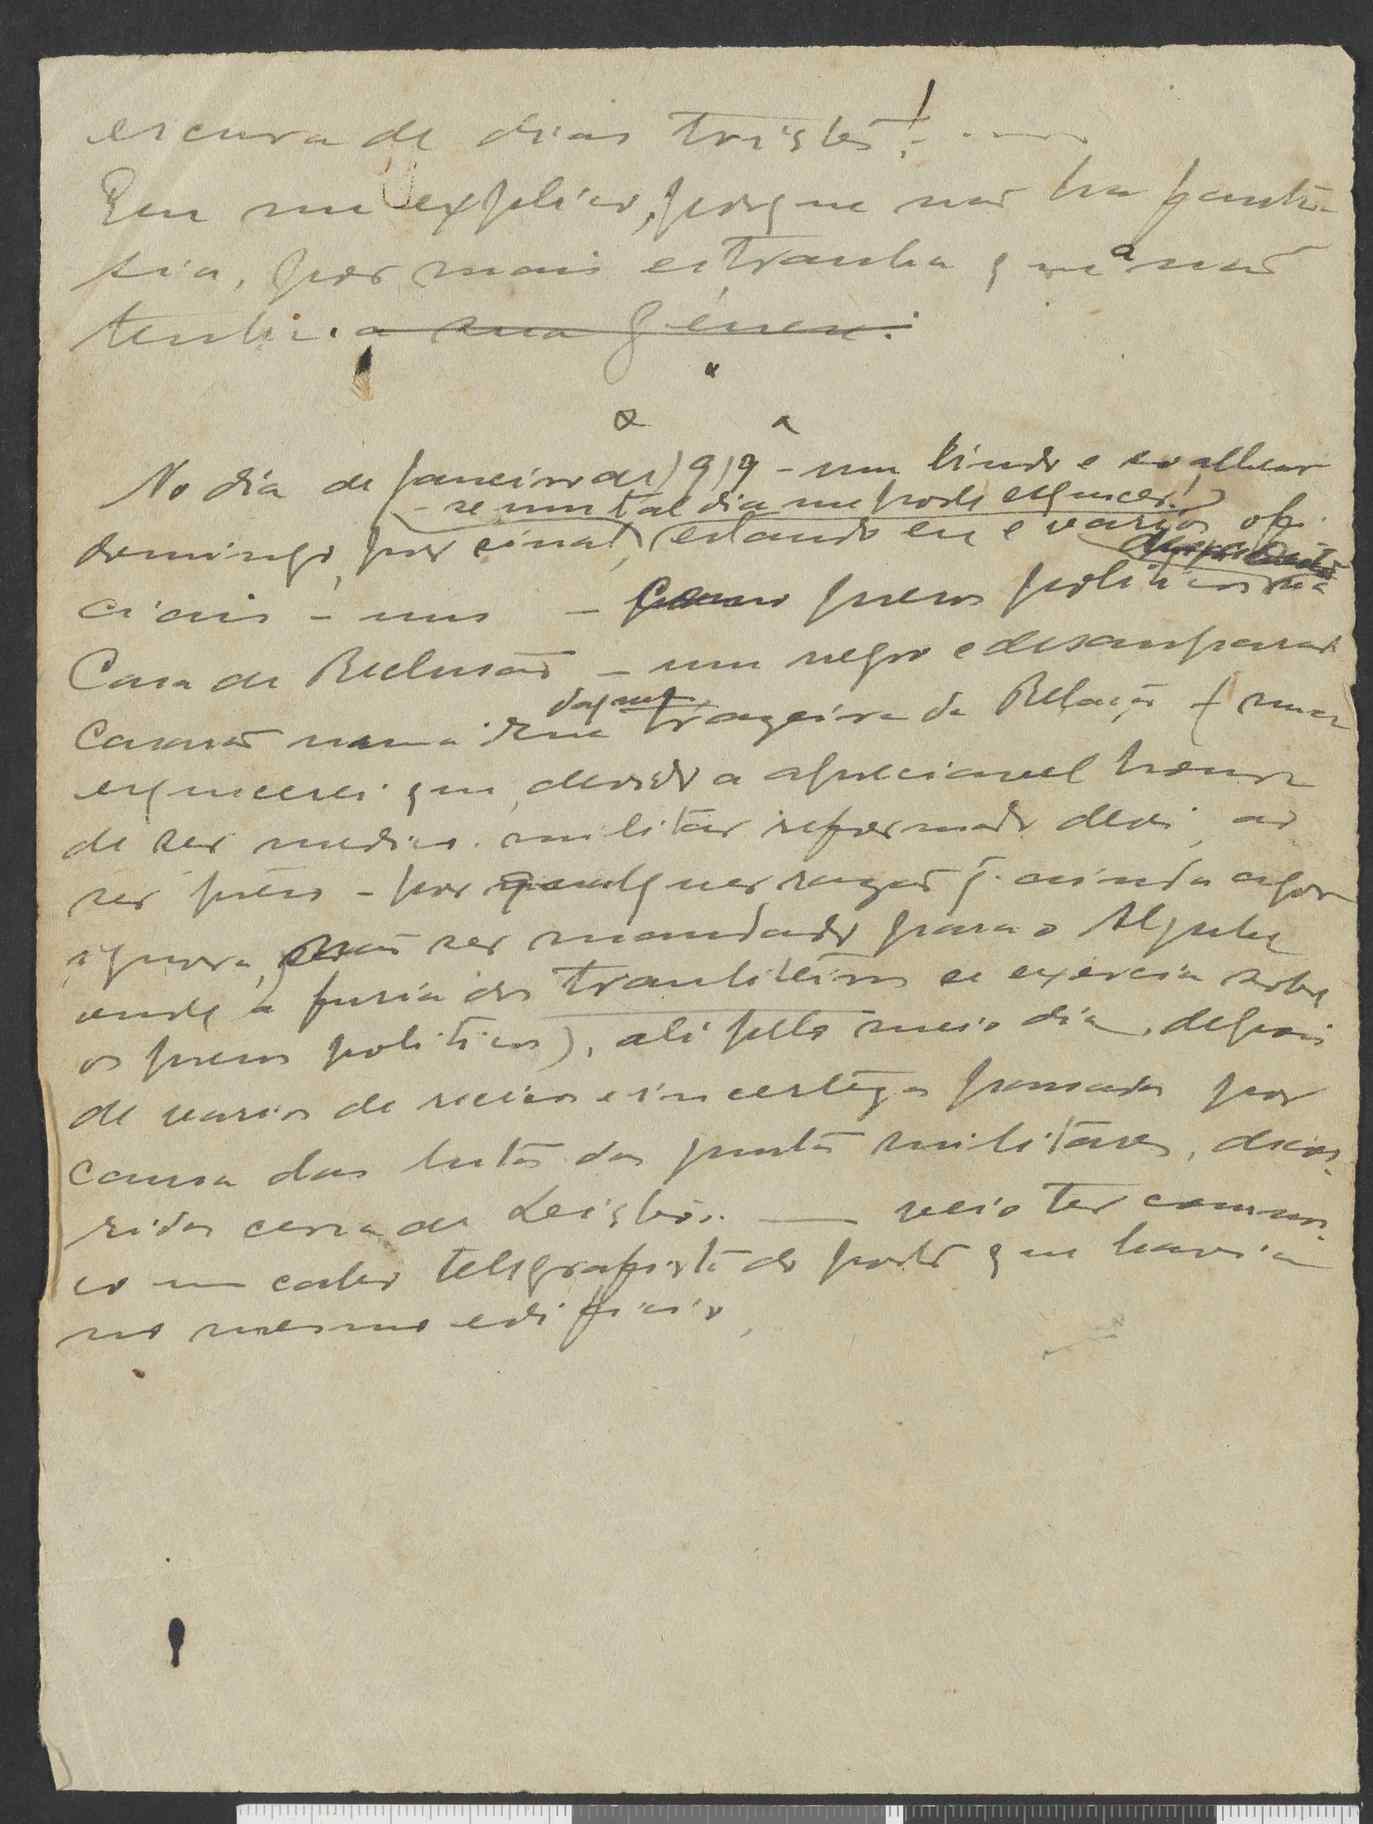 escura de dias tristes!
Eu me explico, porque não ha fanta-
sia, por mais estranha que a não
tenha. a sua génese.
No dia de Janeiro de 1919 - um lindo e
- se um tal dia me pode esquecer!
domingo, por sinal, estando eu e varios ofi-
ciais - uns - como presos politicos na
Casa de Reclusão - um negro e desamparado
casarão numa rua trazeira da Relação (nunca
esquecerei que, devido a apreciavel honra
de ser medico militar reformado devi, ao
ser prêso - por qualquer razão q. ainda agora
ignoro, não ser mandado para o Aljube
onde a furia dos trauliteiros se exercia sobre
os presos politicos), ali pelo meio dia, depois
de varios de receios e incertezas passados por
causa das lutas das juntas militares, decor-
ridas cerca de Leixões. — veio ter comnos-
co um cabo telegrafista do posto que havia
no mesmo edificio,